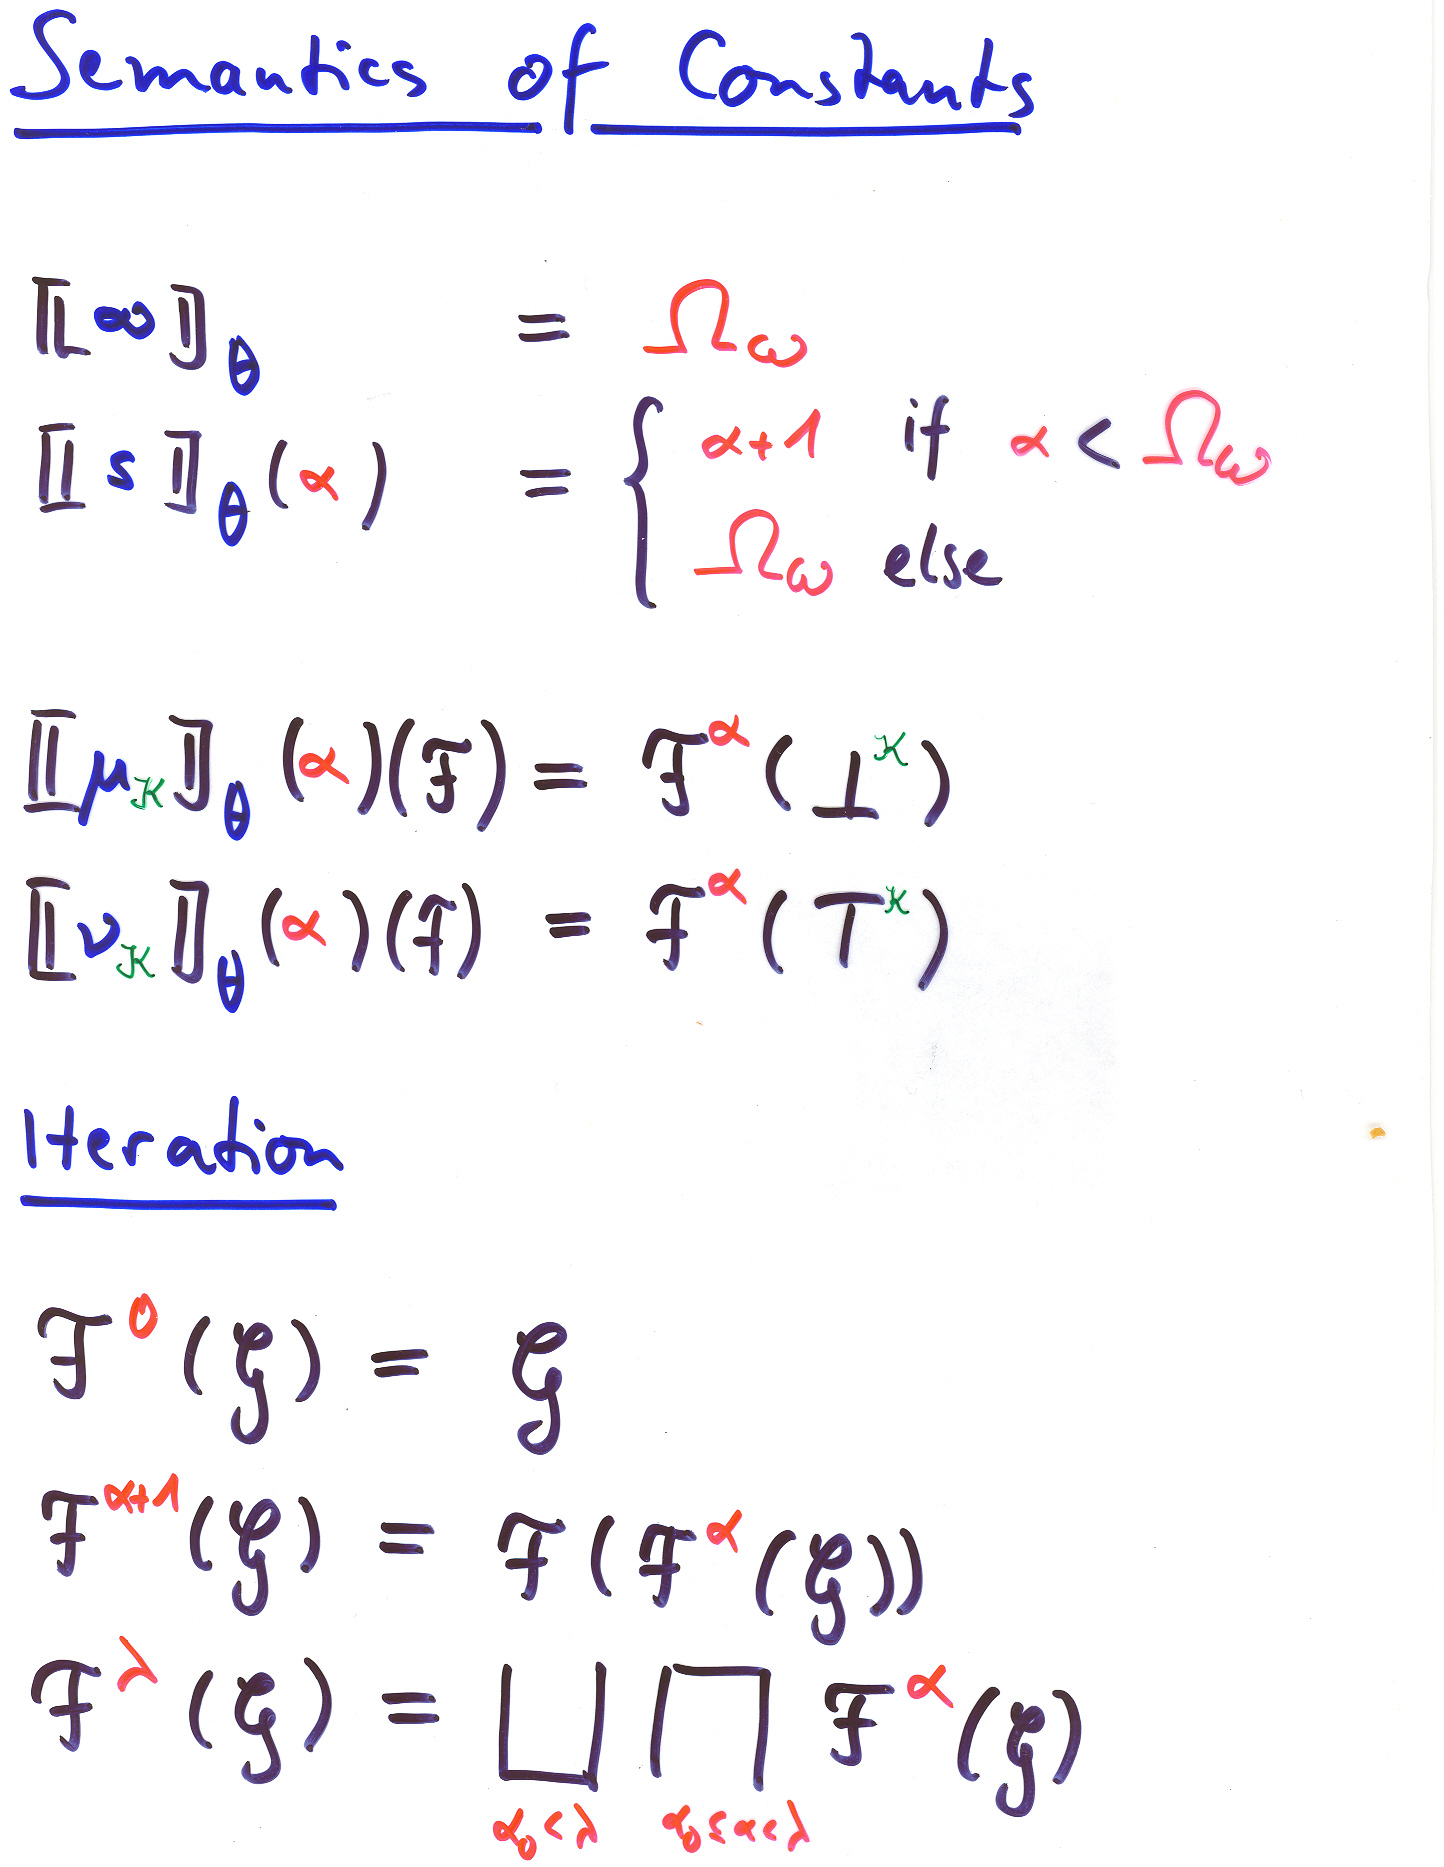 Semantics of Constants
⟦∞⟧_θ = Ω_ω
⟦s⟧_θ(α) = { α+1 if α < Ω_ω
Ω_ω else
⟦μ_𝒦⟧_θ (α)(ℱ) = ℱ^α(⊥^𝒦)
⟦ν_𝒦⟧_θ (α)(ℱ) = ℱ^α(⊤^𝒦)
Iteration
ℱ^0(𝒢) = 𝒢
ℱ^{α+1}(𝒢) = ℱ(ℱ^α(𝒢))
ℱ^λ(𝒢) = ⨆_{α₀<λ} ⨅_{α₀≤α<λ} ℱ^α(𝒢)